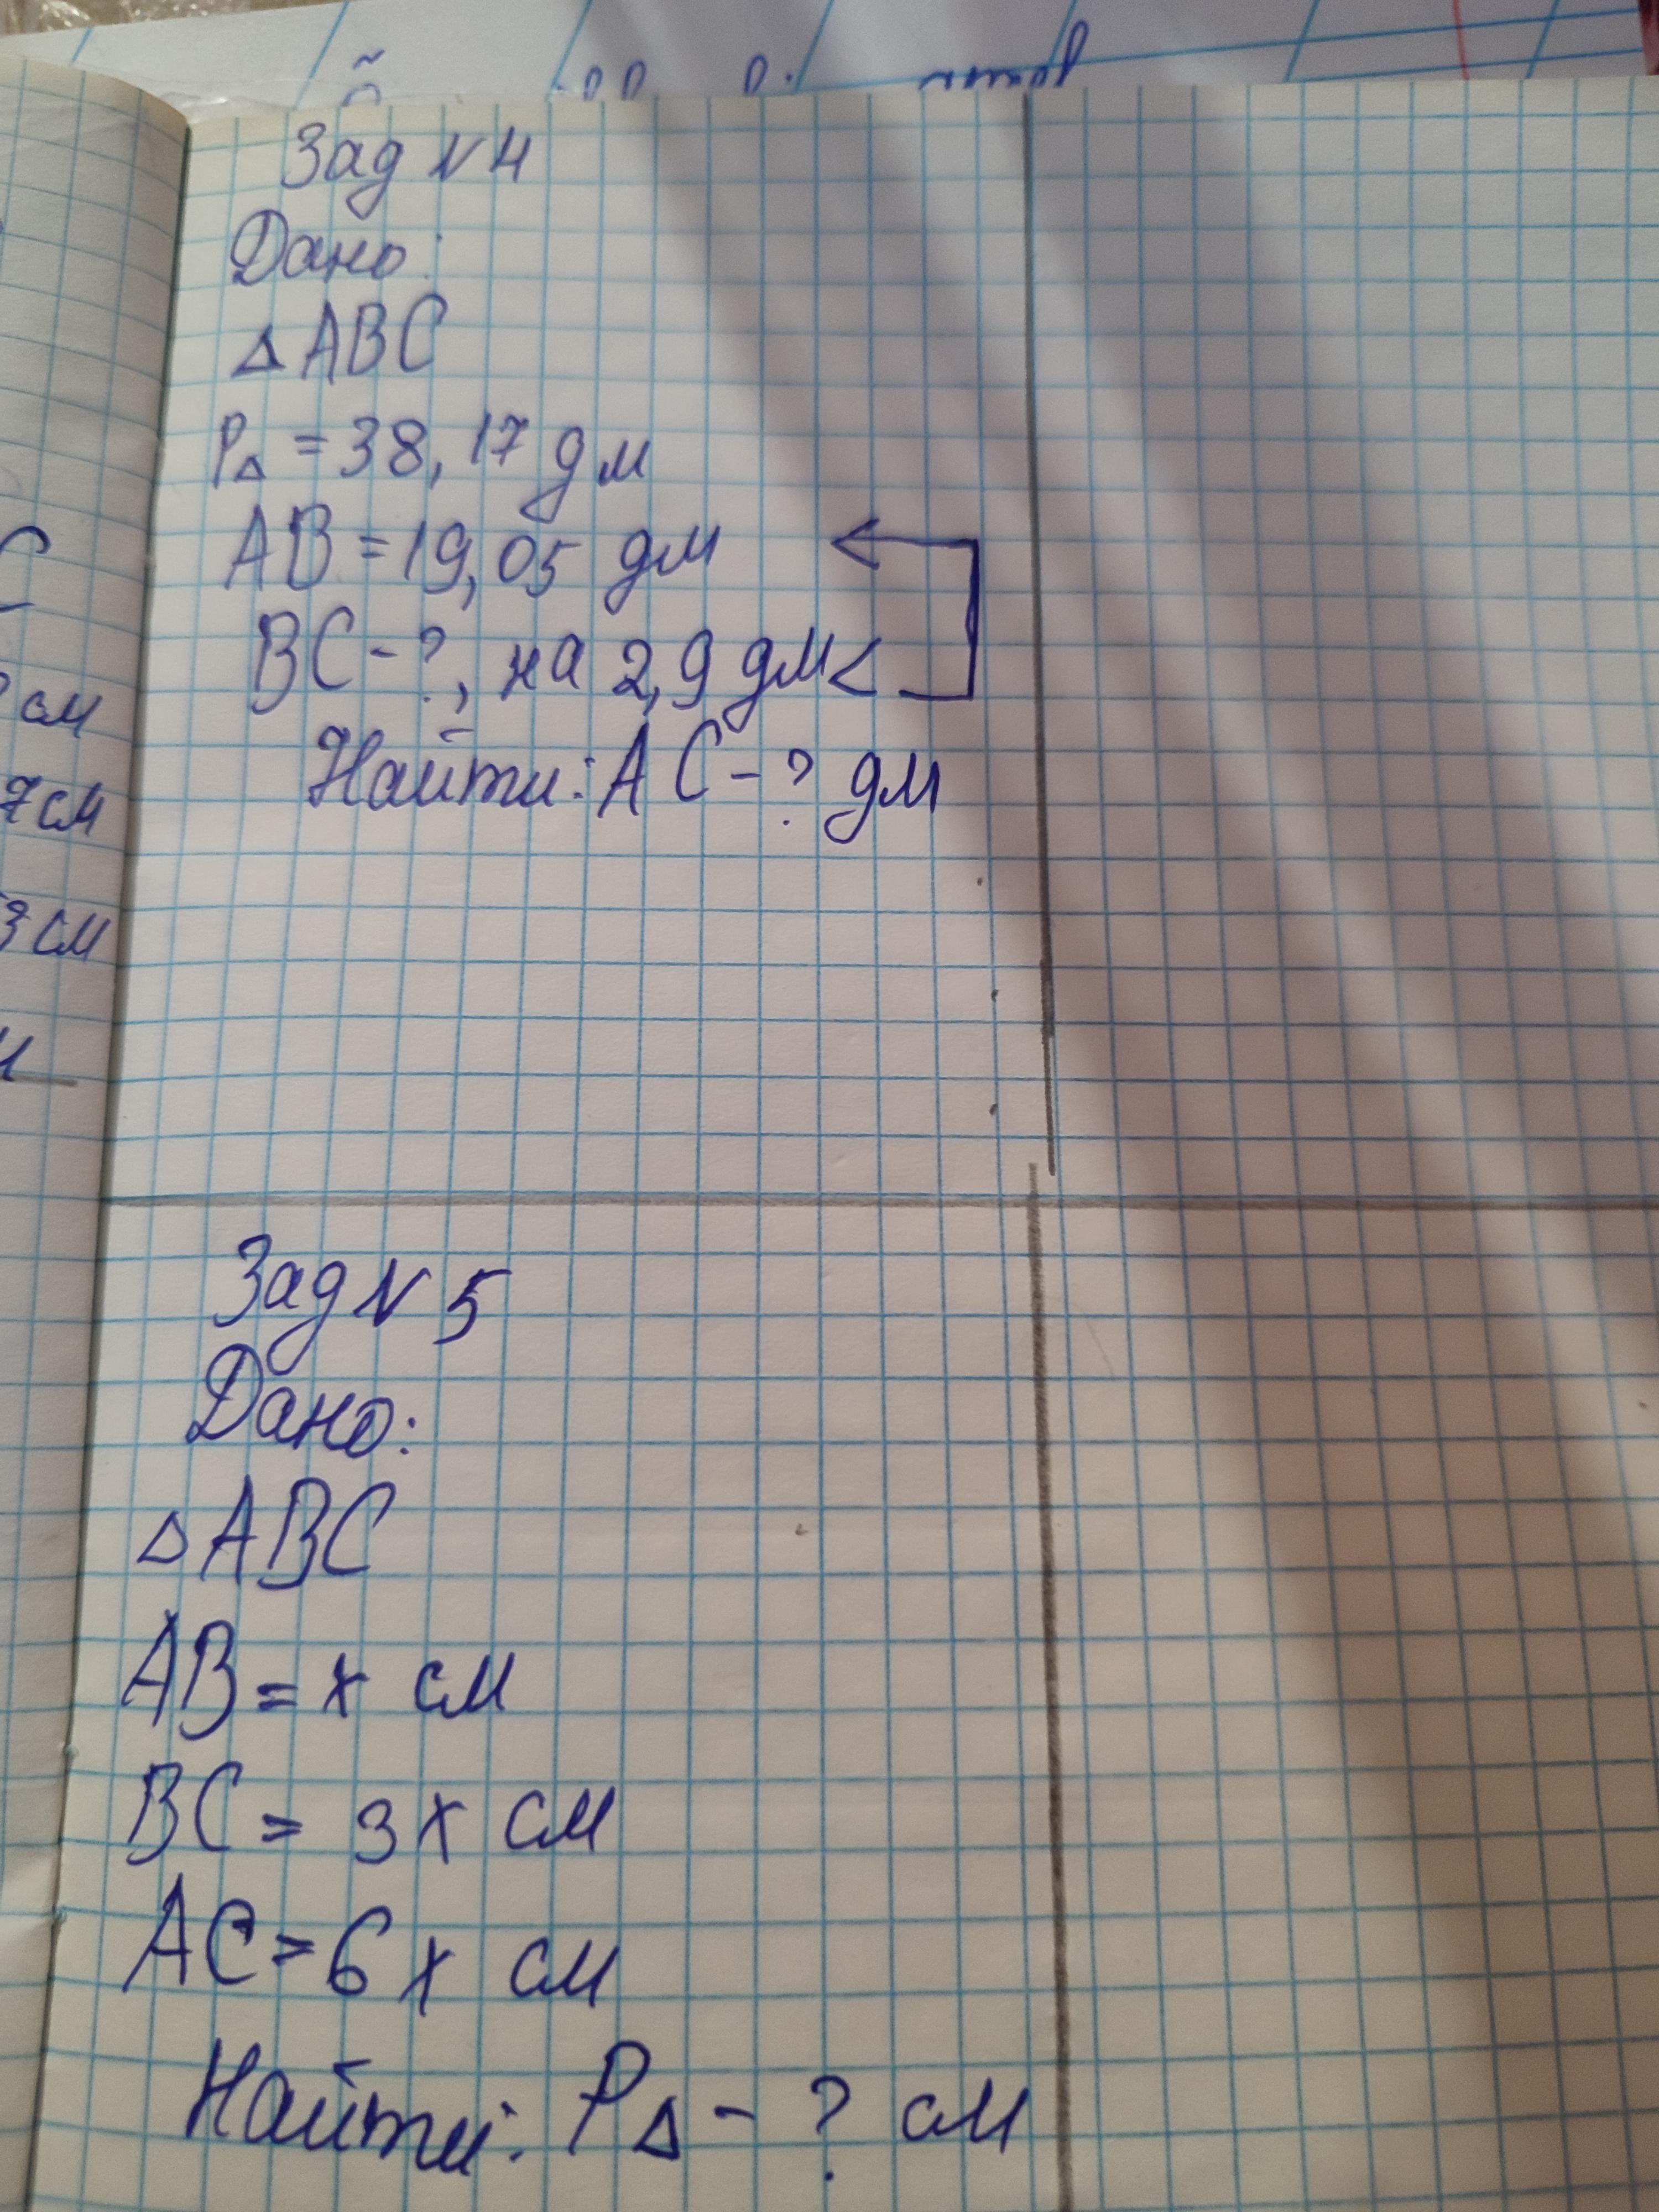 см
7 см
3 см
Зад N 4
Дано:
△ ABC
P△ = 38,17 дм
AB = 19,05 дм
BC - ?, на 2,9 дм <
Найти: AC - ? дм
Зад N 5
Дано:
△ ABC
AB = x см
BC = 3x см
AC = 6x см
Найти: P△ - ? см